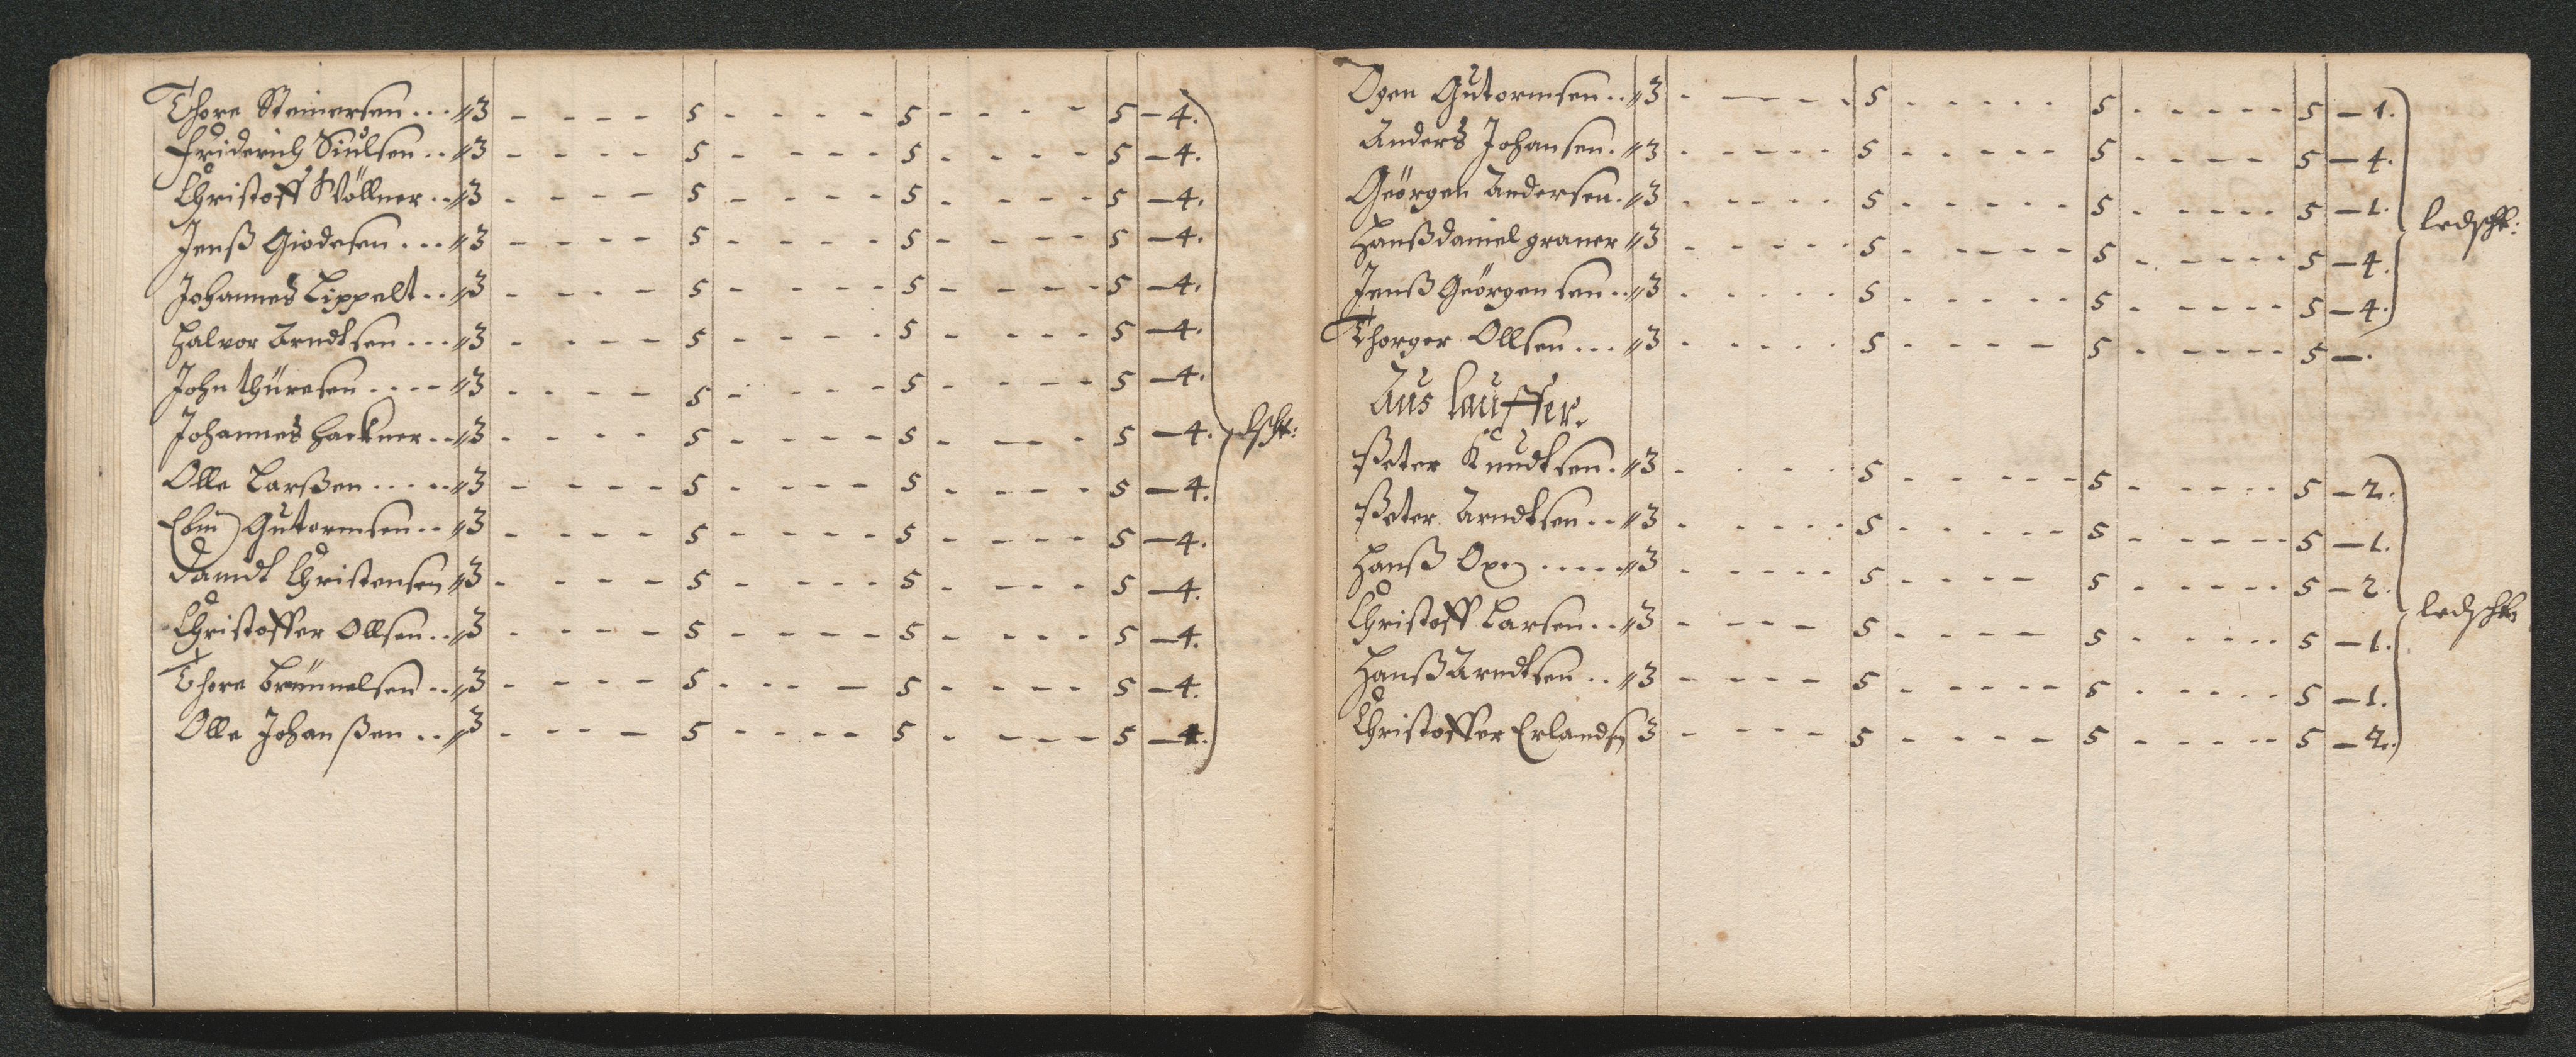 Thore Steinersen ... 〃 3 - - - - 5 - - - - 5 - - - - 5 - 4.
Friderich Siúlsen .. 〃 3 - - - - 5 - - - - 5 - - - - 5 - 4.
Christoff Wöllner .. 〃 3 - - - - 5 - - - - 5 - - - - 5 - 4.
Jenß Giodesen ... 〃 3 - - - - 5 - - - - 5 - - - - 5 - 4.
Johannes Lippelt .. 〃 3 - - - - 5 - - - - 5 - - - - 5 - 4.
Halvor Arndtsen ... 〃 3 - - - - 5 - - - - 5 - - - - 5 - 4.
John thüresen .... 〃 3 - - - - 5 - - - - 5 - - - - 5 - 4.
Johannes Hackner .. 〃 3 - - - - 5 - - - - 5 - - - - 5 - 4.
Olle Larßen ..... 〃 3 - - - - 5 - - - - 5 - - - - 5 - 4.
Gútormsen .. 〃 3 - - - - 5 - - - - 5 - - - - 5 - 4.
Christensen 〃 3 - - - - 5 - - - - 5 - - - - 5 - 4.
Christoffer Ollsen .. 〃 3 - - - - 5 - - - - 5 - - - - 5 - 4.
Thore Brünnelsen .. 〃 3 - - - - 5 - - - - 5 - - - - 5 - 4.
Olle Johanßen .. 〃 3 - - - - 5 - - - - 5 - - - - 5 - 4.
Ogen Gútormsen .. 〃 3 - - - - 5 - - - - - 5 - - - - - 5 - 1.
Anders Johansen . 〃 3 - - - - - 5 - - - - - 5 - - - - 5 - 4.
Geörgen Andersen . 〃 3 - - - - - 5 - - - - - 5 - - - - - 5 - 1.
ledscht:
Hanß daniel graner 〃 3 - - - - - 5 - - - - - 5 - - - - - 5 - 4.
Jenß Geörgensen .. 〃 3 - - - - - 5 - - - - - 5 - - - - - 5 - 4.
Thorger Ollsen ... 〃 3 - - - - - 5 - - - - 5 - - - - - 5 - .
Aus lauffer.
Peter Knúdtsen . 〃 3 - - - - 5 - - - - - 5 - - - - - 5 - 2.
Peter Arndtsen .. 〃 3 - - - - - 5 - - - - - 5 - - - - - 5 - 1.
Hanß Oxen ..... 〃 3 - - - - - 5 - - - - 5 - - - - - 5 - 2.
ledscht
Christoff Larsen .. 〃 3 - - - - 5 - - - - 5 - - - - - 5 - 1.
Hanß Arndtsen .. 〃 3 - - - - 5 - - - - - 5 - - - - - 5 - 1.
Christoffer Erlands 3 - - - - 5 - - - - 5 - - - - - 5 - 2.